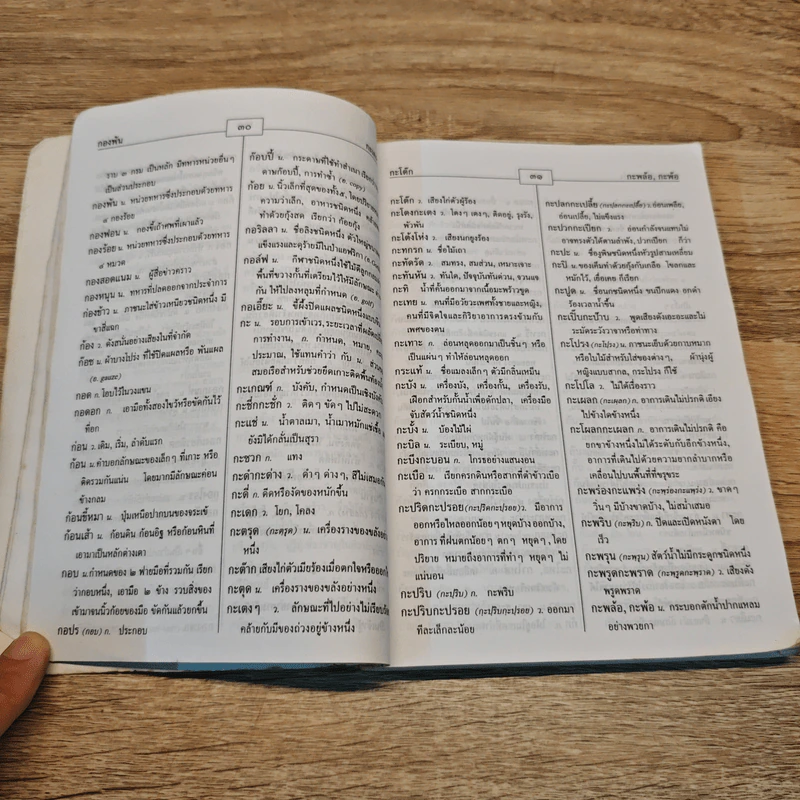 กองพัน
๓๐
ราบ ๓ กรม เป็นหลัก มีทหารหน่วยอื่นๆ
เป็นส่วนประกอบ
กองพัน น. หน่วยทหารซึ่งประกอบด้วยทหาร
๔ กองร้อย
กองฟอน น. กองขี้เถ้าศพที่เผาแล้ว
กองร้อย น. หน่วยทหารซึ่งประกอบด้วยทหาร
๔ หมวด
กองสอดแนม น. ผู้สื่อข่าวคราว
กองหนุน น. ทหารที่ปลดออกจากประจำการ
ก่องข้าว น. ภาชนะใส่ข้าวเหนียวชนิดหนึ่ง มี
ขาสี่แฉก
ก้อง ว. ดังสนั่นอย่างเสียงในที่จำกัด
ก๊อซ น. ผ้าบางโปร่ง ที่ใช้ปิดแผลหรือ พันแผล
(อ. gauze)
กอด ก. โอบไว้ในวงแขน
กอดอก ก. เอามือทั้งสองไขว้หรือขัดกันไว้
ที่อก
ก่อน ว. เดิม, เริ่ม, ลำดับแรก
ก้อน น. คำบอกลักษณะของเล็กๆ ที่เกาะ หรือ
ติดรวมกันแน่น โดยมากมีลักษณะค่อน
ข้างกลม
ก้อนขี้หมา น. ปุ่มเหนือปากบนของจระเข้
ก้อนเส้า น. ก้อนดิน ก้อนอิฐ หรือก้อนหินที่
เอามาเป็นหลักต่างเตา
กอบ น. กำหนดของ ๒ ฟายมือที่รวมกัน เรียก
ว่ากอบหนึ่ง, เอามือ ๒ ข้าง รวบสิ่งของ
เข้ามาจนนิ้วก้อยของมือ ขัดกันแล้วยกขึ้น
กอปร (กอบ) ก. ประกอบ
ก๊อบปี้ น. กระดาษที่ใช้ทำสำเนา
ดาษก๊อบปี้, การทำซ้ำ (อ. copy)
ก้อย น. นิ้วเล็กที่สุดของทั้ง๕,
ความว่าเล็ก, อาหารชนิดหนึ่ง
ทำด้วยกุ้งสด เรียกว่า ก้อยกุ้ง
กอริลลา น. ชื่อลิงชนิดหนึ่ง ตัวใหญ่
แข็งแรงและดุร้ายมีในป่าแอฟริกา
กอล์ฟ น. กีฬาชนิดหนึ่งใช้ไม้ตีลูกกลมๆ
พื้นที่ขวางกั้นที่เตรียมไว้ให้มีลักษณะ
กัน ให้ไปลงหลุมที่กำหนด (อ. golf)
กอเอี๊ยะ น. ขี้ผึ้งปิดแผลชนิดหนึ่งแบบจีน
กะ น. รอบการเข้าเวร, ระยะเวลาที่ผลัด
การทำงาน, ก. กำหนด, หมาย,
ประมาณ, ใช้แทนคำว่า กับ
สมอเรือสำหรับช่วยยึดเกาะติดพื้น
กะเกณฑ์ น. บังคับ, กำหนดเป็นเชิงบังคับ
กะชึกกะชัก ว. ติดๆ ขัดๆ ไปไม่สะดวก
กะแช่ น. น้ำตาลเมา, น้ำเมาหมักแช่
ยังมิได้กลั่นเป็นสุรา
กะซวก ก. แทง
กะดำกะด่าง ว. ดำๆ ด่างๆ, สีไม่เสมอกัน
กะดี่ ก. คีดหรืองัดของหนักขึ้น
กะเดก ว. โยก, โคลง
กะตรุด (กะตรุด) น. เครื่องรางของขลังอย่าง
หนึ่ง
กะต๊าก เสียงไก่ตัวเมียร้องเมื่อตกใจหรือออกไข่
กะตุด น. เครื่องรางของขลังอย่างหนึ่ง
กะเตงๆ ว. ลักษณะที่ไปอย่างไม่เรียบร้อย
คล้ายกับมีของถ่วงอยู่ข้างหนึ่ง
กะโต๊ก
๓๑
กะพล้อ, กะพ้อ
กะโต๊ก ว. เสียงไก่ตัวผู้ร้อง
กะโตงกะเตง ว. โตงๆ เตงๆ, ติดอยู่, รุงรัง,
พัวพัน
กะโต้งโห่ง ว. เสียงนกยูงร้อง
กะทกรก น. ชื่อไม้เถา
กะทัดรัด ว. สมทรง, สมส่วน, เหมาะเจาะ
กะทันหัน ว. ทันใด, ปัจจุบันทันด่วน, จวนแจ
กะทิ น้ำที่กั้นออกมาจากเนื้อมะพร้าวขูด
กะเทย น. คนที่มีอวัยวะเพศทั้งชายและหญิง,
คนที่มีจิตใจและกิริยาอาการตรงข้ามกับ
เพศของตน
กะเทาะ ก. ล่อนหลุดออกมาเป็นชิ้นๆ หรือ
เป็นแผ่นๆ ทำให้ล่อนหลุดออก
กระแท้ น. ชื่อแมลงเล็กๆ ตัวมีกลิ่นเหม็น
กะบัง น. เครื่องบัง, เครื่องกั้น, เครื่องรับ,
เฝือกสำหรับกั้นน้ำเพื่อดักปลา, เครื่องมือ
จับสัตว์น้ำชนิดหนึ่ง
กะบั้ง น. บ้องไม้ไผ่
กะบิล น. ระเบียบ, หมู่
กะบึงกะบอน ก. โกรธอย่างแสนงอน
กะเบือ น. เรียกครกดินหรือสากที่ตำข้าวเบือ
ว่า ครกกระเบือ สากกระเบือ
กะปริดกะปรอย (กะปริดกะปรอย) ว. มีอาการ
ออกหรือไหลออกน้อยๆ หยุดบ้าง ออกบ้าง,
อาการ ที่ฝนตกน้อยๆ ตกๆ หยุดๆ, โดย
ปริยาย หมายถึงอาการที่ทำๆ หยุดๆ ไม่
แน่นอน
กะปริบ (กะปริบ) ก. กะพริบ
กะปริบกะปรอย (กะปริบกะปรอย) ว. ออกมา
ทีละเล็กละน้อย
กะปลกกะเปลี้ย (กะปลกกะเปลี้ย) ว. อ่อนเพลีย,
อ่อนเปลี้ย, ไม่แข็งแรง
กะปวกกะเปียก ว. อ่อนกำลังจนแทบไม่
อาจทรงตัวได้ตามลำพัง, ปวกเปียก ก็ว่า
กะปะ น. ชื่องูพิษชนิดหนึ่งหัวรูปสามเหลี่ยม
กะปิ น. ของเค็มทำด้วยกุ้งกับเกลือ โขลกและ
หมักไว้, เยื่อเคย ก็เรียก
กะปูด น. ชื่อนกชนิดหนึ่ง ขนปีกแดง อกดำ
ร้องเวลาน้ำขึ้น
กะเปิ๊บกะป๊าบ ว. พูดเสียงดังเอะอะและไม่
ระมัดระวังวาจาหรือท่าทาง
กะโปรง (กะโปรง) น. ภาชนะเย็บด้วยกาบหมาก
หรือใบไม้สำหรับใส่ของต่างๆ, ผ้านุ่งผู้
หญิงแบบสากล, กระโปรง ก็ใช้
กะโปโล ว. ไม่ได้เรื่องราว
กะเผลก (กะเผลก) ก. อาการเดินไม่ปรกติ เอียง
ไปข้างใดข้างหนึ่ง
กะโผลกกะเผลก ก. อาการเดินไม่ปรกติ คือ
ยกขาข้างหนึ่งไม่ได้ระดับกับอีกข้างหนึ่ง,
อาการที่เดินไปด้วยความยากลำบากหรือ
เคลื่อนไปบนพื้นที่ที่ขรุขระ
กะพร่องกะแพร่ง (กะพร่องกะแพร่ง) ว. ขาดๆ
วิ่นๆ มีบ้างขาดบ้าง, ไม่สม่ำเสมอ
กะพริบ (กะพริบ) ก. ปิดและเปิดหนังตา โดย
เร็ว
กะพรุน (กะพรุน) สัตว์น้ำไม่มีกระดูกชนิดหนึ่ง
กะพรูดกะพราด (กะพรูดกะพราด) ว. เสียงดัง
พรูดพราด
กะพล้อ, กะพ้อ น. กระบอกตักน้ำปากแหลม
อย่างพวยกา